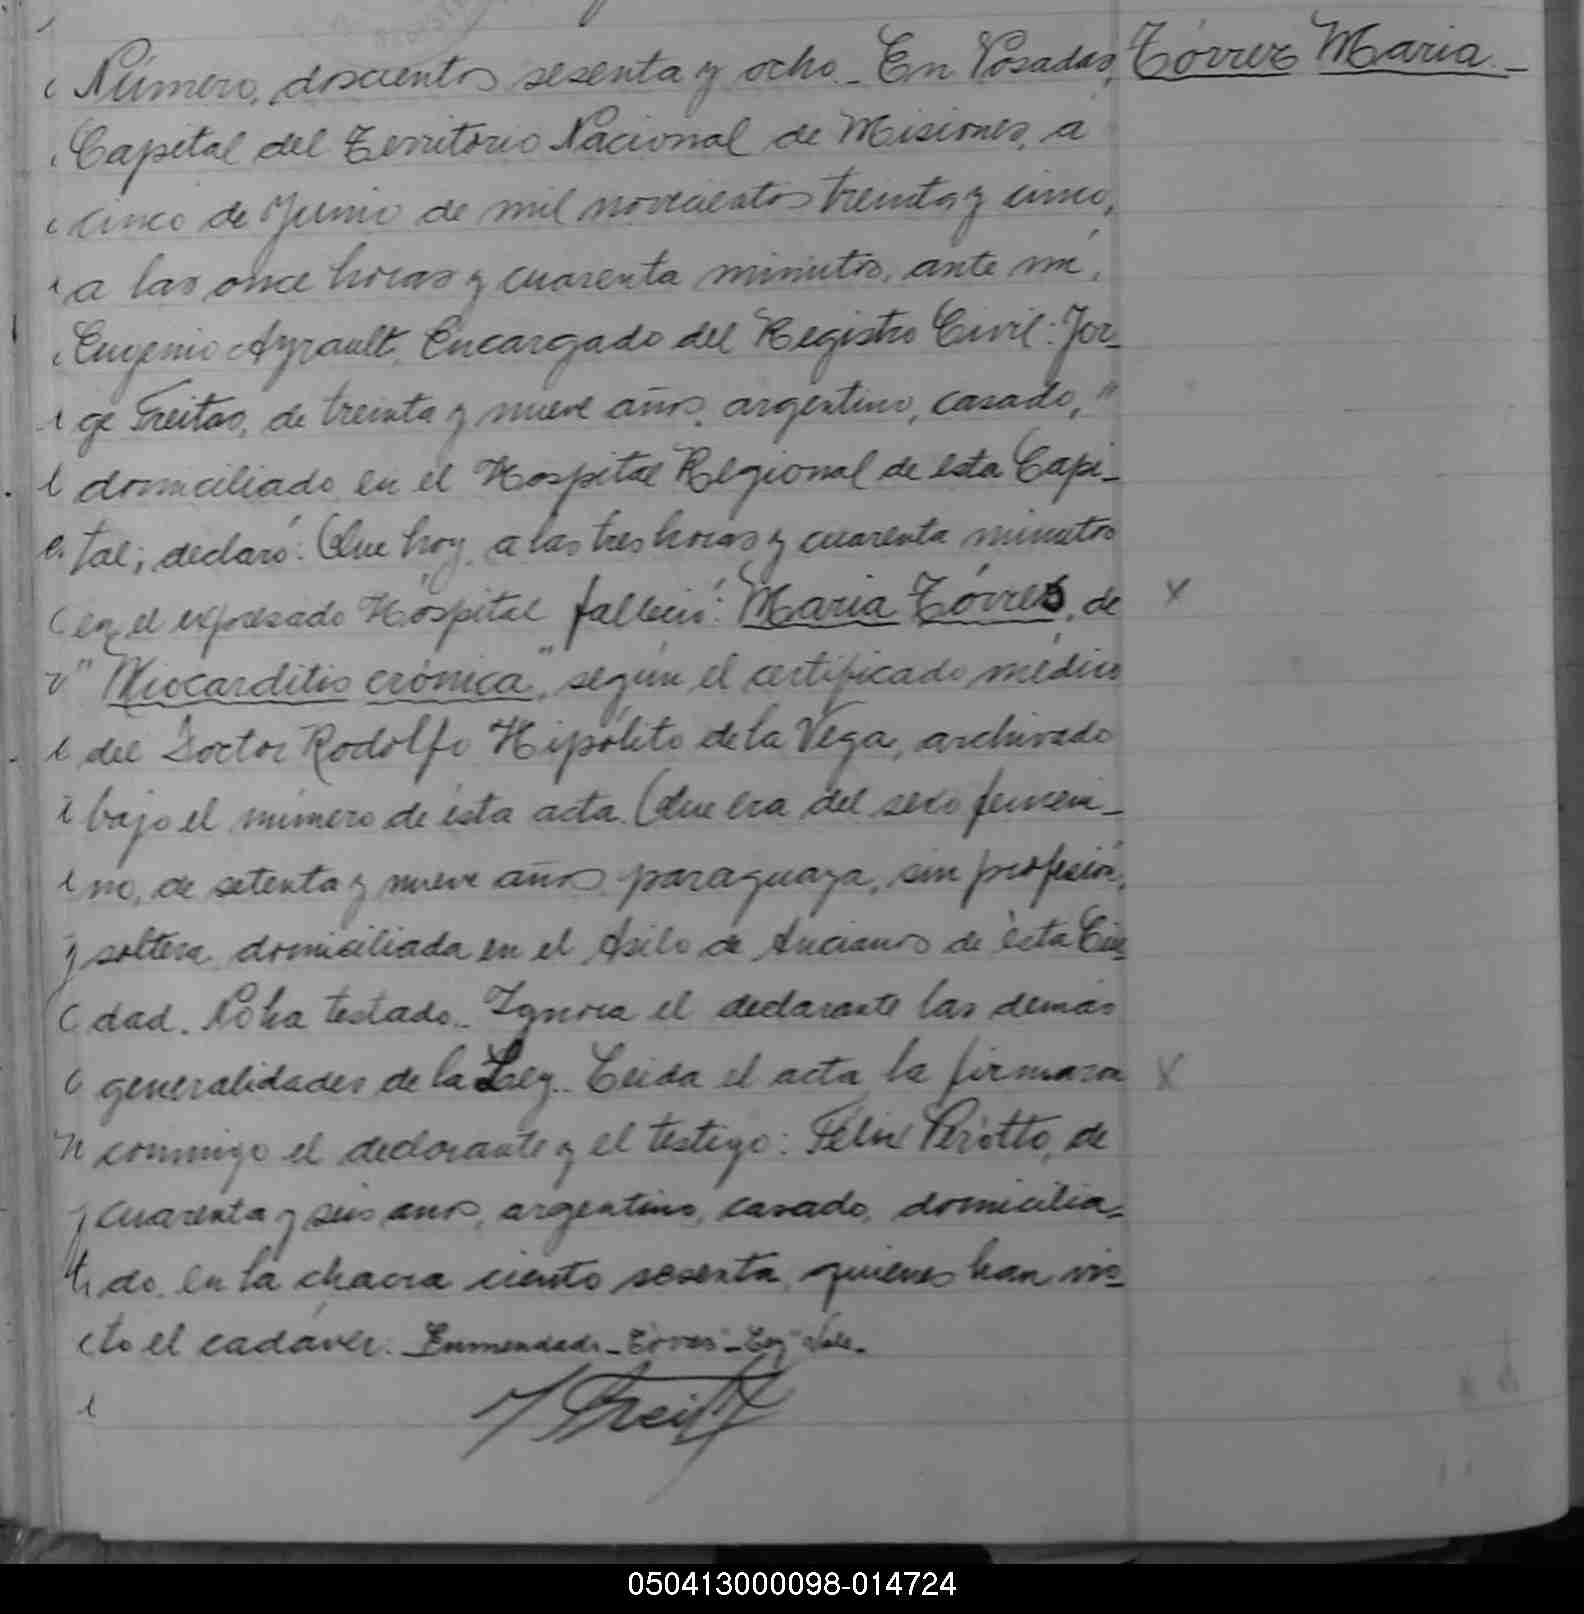 Número, doscientos sesenta y ocho_ En Posadas, Tórrez Maria_
Capital del Territorio Nacional de Misiones, á
cinco de Junio de mil novecientos treinta y cinco,
a las once horas y cuarenta minutos, ante mí,
Eugenio Ayrault, Encargado del Registro Civil: Jor_
ge Freitas, de treinta y nueve años, argentino, casado, "
domiciliado en el Hospital Regional de esta Capi_
tal; declaró: Que hoy, a las tres horas y cuarenta minutos
en el expresado Hospital falleció: Maria Tórres, de X
"Miocarditis crónica", según el certificado médico
del Doctor Rodolfo Hipólito de la Vega, archivado
bajo el número de ésta acta. Que era del sexo femeni_
no, de setenta y nueve años, paraguaya, sin profesión,
soltera, domiciliada en el Asilo de Ancianos de ésta Ciu_
dad. No ha testado._ Ignora el declarante las demás
generalidades de la Ley._ Leída el acta la firmaron X
conmigo el declarante y el testigo: Félix Perotto, de
cuarenta y seis anos, argentino, casado, domicilia=
do en la chacra ciento sesenta, quienes han vis=
to el cadáver. Enmendado_Tórres"_Ley" Vale._
050413000098-014724